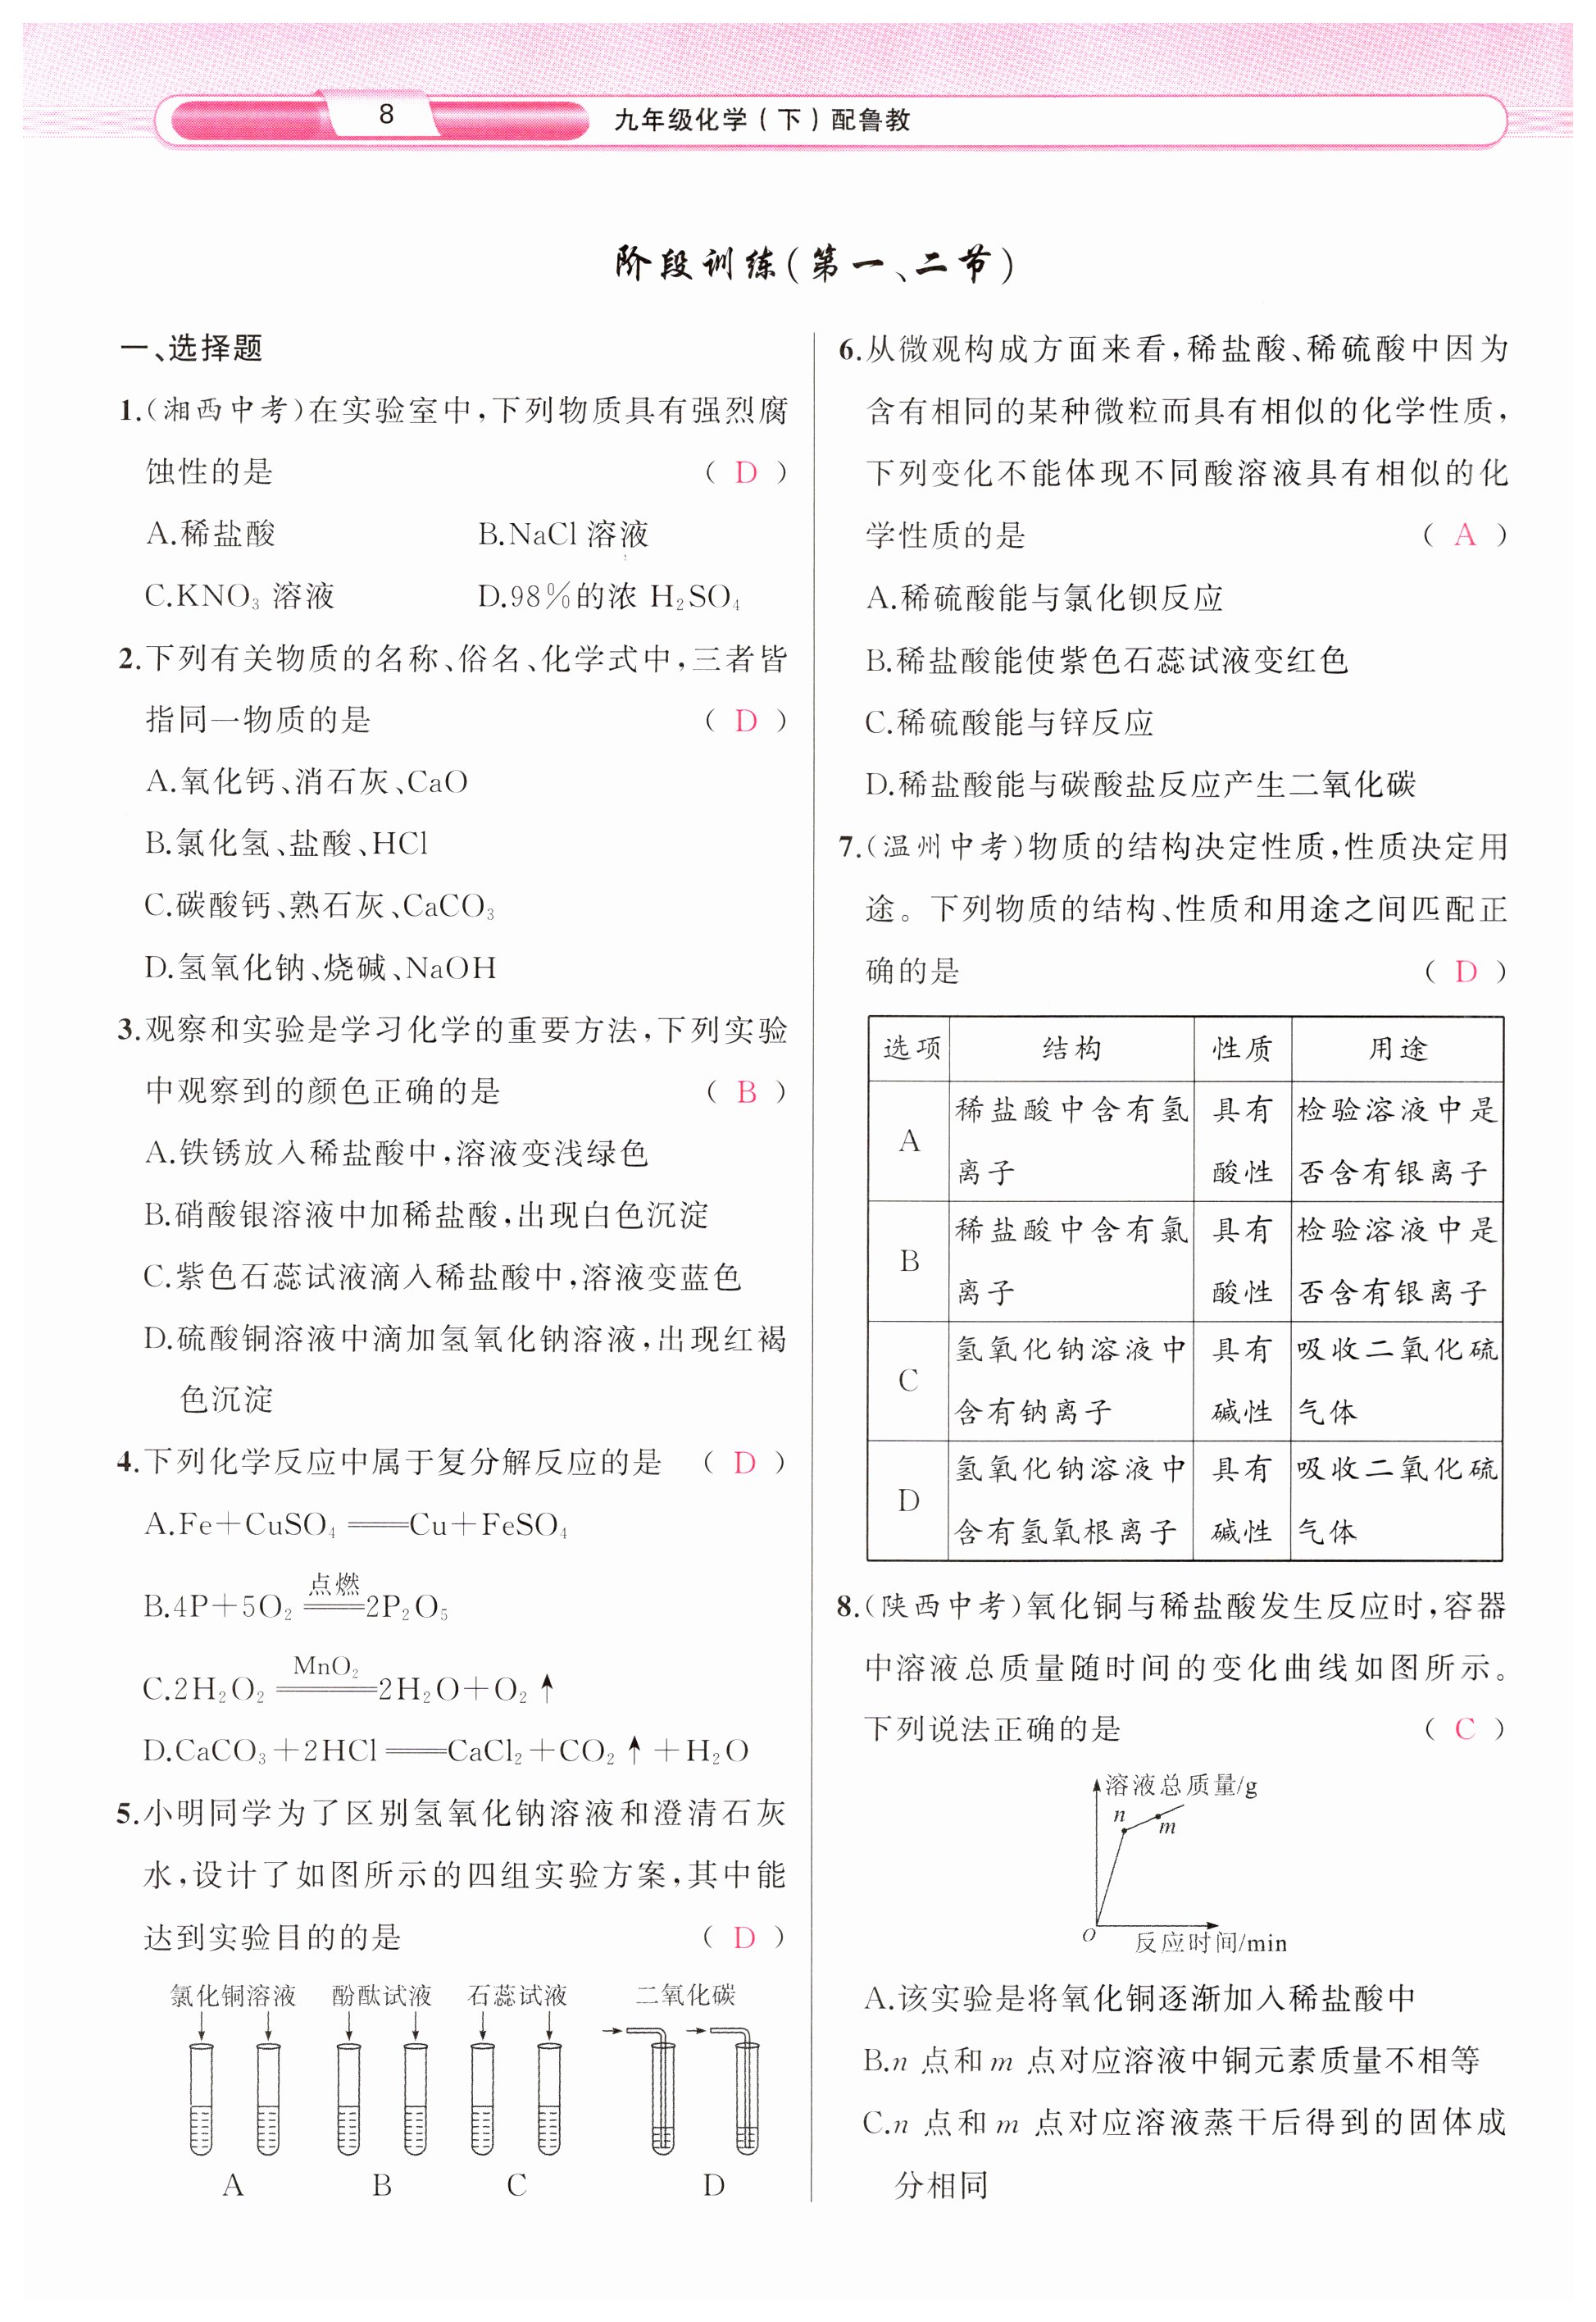 8
九年级化学（下）配鲁教
阶段训练(第一、二节)
一、选择题
1.(湘西中考)在实验室中,下列物质具有强烈腐
蚀性的是 （ D ）
A.稀盐酸 B.NaCl 溶液
C.KNO₃ 溶液 D.98%的浓 H₂SO₄
2.下列有关物质的名称、俗名、化学式中,三者皆
指同一物质的是 （ D ）
A.氧化钙、消石灰、CaO
B.氯化氢、盐酸、HCl
C.碳酸钙、熟石灰、CaCO₃
D.氢氧化钠、烧碱、NaOH
3.观察和实验是学习化学的重要方法,下列实验
中观察到的颜色正确的是 （ B ）
A.铁锈放入稀盐酸中,溶液变浅绿色
B.硝酸银溶液中加稀盐酸,出现白色沉淀
C.紫色石蕊试液滴入稀盐酸中,溶液变蓝色
D.硫酸铜溶液中滴加氢氧化钠溶液,出现红褐
色沉淀
4.下列化学反应中属于复分解反应的是 （ D ）
A.Fe+CuSO₄ ══ Cu+FeSO₄
点燃
B.4P+5O₂ ══ 2P₂O₅
MnO₂
C.2H₂O₂ ══ 2H₂O+O₂↑
D.CaCO₃+2HCl ══ CaCl₂+CO₂↑+H₂O
5.小明同学为了区别氢氧化钠溶液和澄清石灰
水,设计了如图所示的四组实验方案,其中能
达到实验目的的是 （ D ）
氯化铜溶液 酚酞试液 石蕊试液 二氧化碳
A B C D
6.从微观构成方面来看,稀盐酸、稀硫酸中因为
含有相同的某种微粒而具有相似的化学性质,
下列变化不能体现不同酸溶液具有相似的化
学性质的是 （ A ）
A.稀硫酸能与氯化钡反应
B.稀盐酸能使紫色石蕊试液变红色
C.稀硫酸能与锌反应
D.稀盐酸能与碳酸盐反应产生二氧化碳
7.(温州中考)物质的结构决定性质,性质决定用
途。下列物质的结构、性质和用途之间匹配正
确的是 （ D ）
选项 结构 性质 用途
A 稀盐酸中含有氢 具有 检验溶液中是
离子 酸性 否含有银离子
B 稀盐酸中含有氯 具有 检验溶液中是
离子 酸性 否含有银离子
C 氢氧化钠溶液中 具有 吸收二氧化硫
含有钠离子 碱性 气体
D 氢氧化钠溶液中 具有 吸收二氧化硫
含有氢氧根离子 碱性 气体
8.(陕西中考)氧化铜与稀盐酸发生反应时,容器
中溶液总质量随时间的变化曲线如图所示。
下列说法正确的是 （ C ）
溶液总质量/g
n
m
O
反应时间/min
A.该实验是将氧化铜逐渐加入稀盐酸中
B.n 点和 m 点对应溶液中铜元素质量不相等
C.n 点和 m 点对应溶液蒸干后得到的固体成
分相同